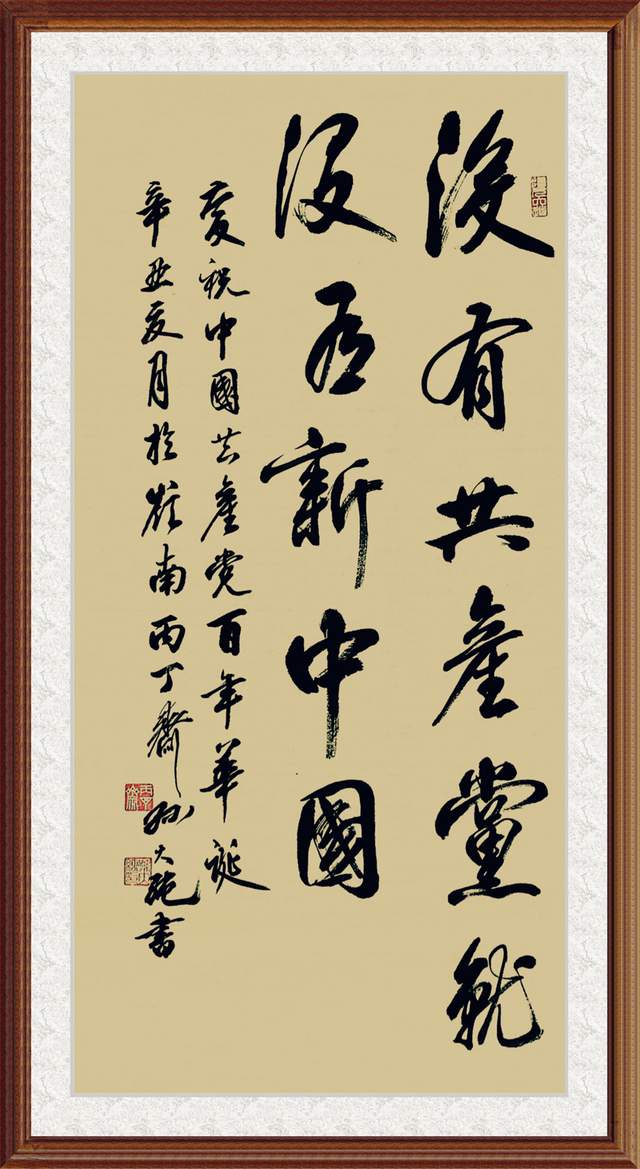 沒有共產黨就
沒有新中國
慶祝中國共產党百年華誕
辛丑夏月於嶺南丙丁齋孙大書